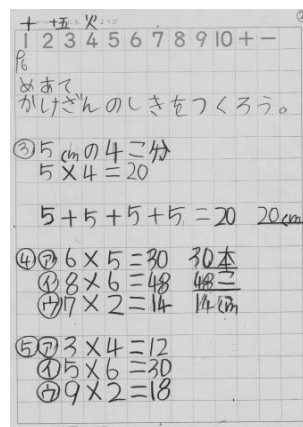 十 十五 火
1 2 3 4 5 6 7 8 9 10 + −
P6
めあて
かけざんのしきをつくろう。
③ 5cmの4こ分
5×4=20
5+5+5+5=20 20cm
④㋐6×5=30 30本
㋑8×6=48 48こ
㋒7×2=14 14cm
⑤㋐3×4=12
㋑5×6=30
㋒9×2=18